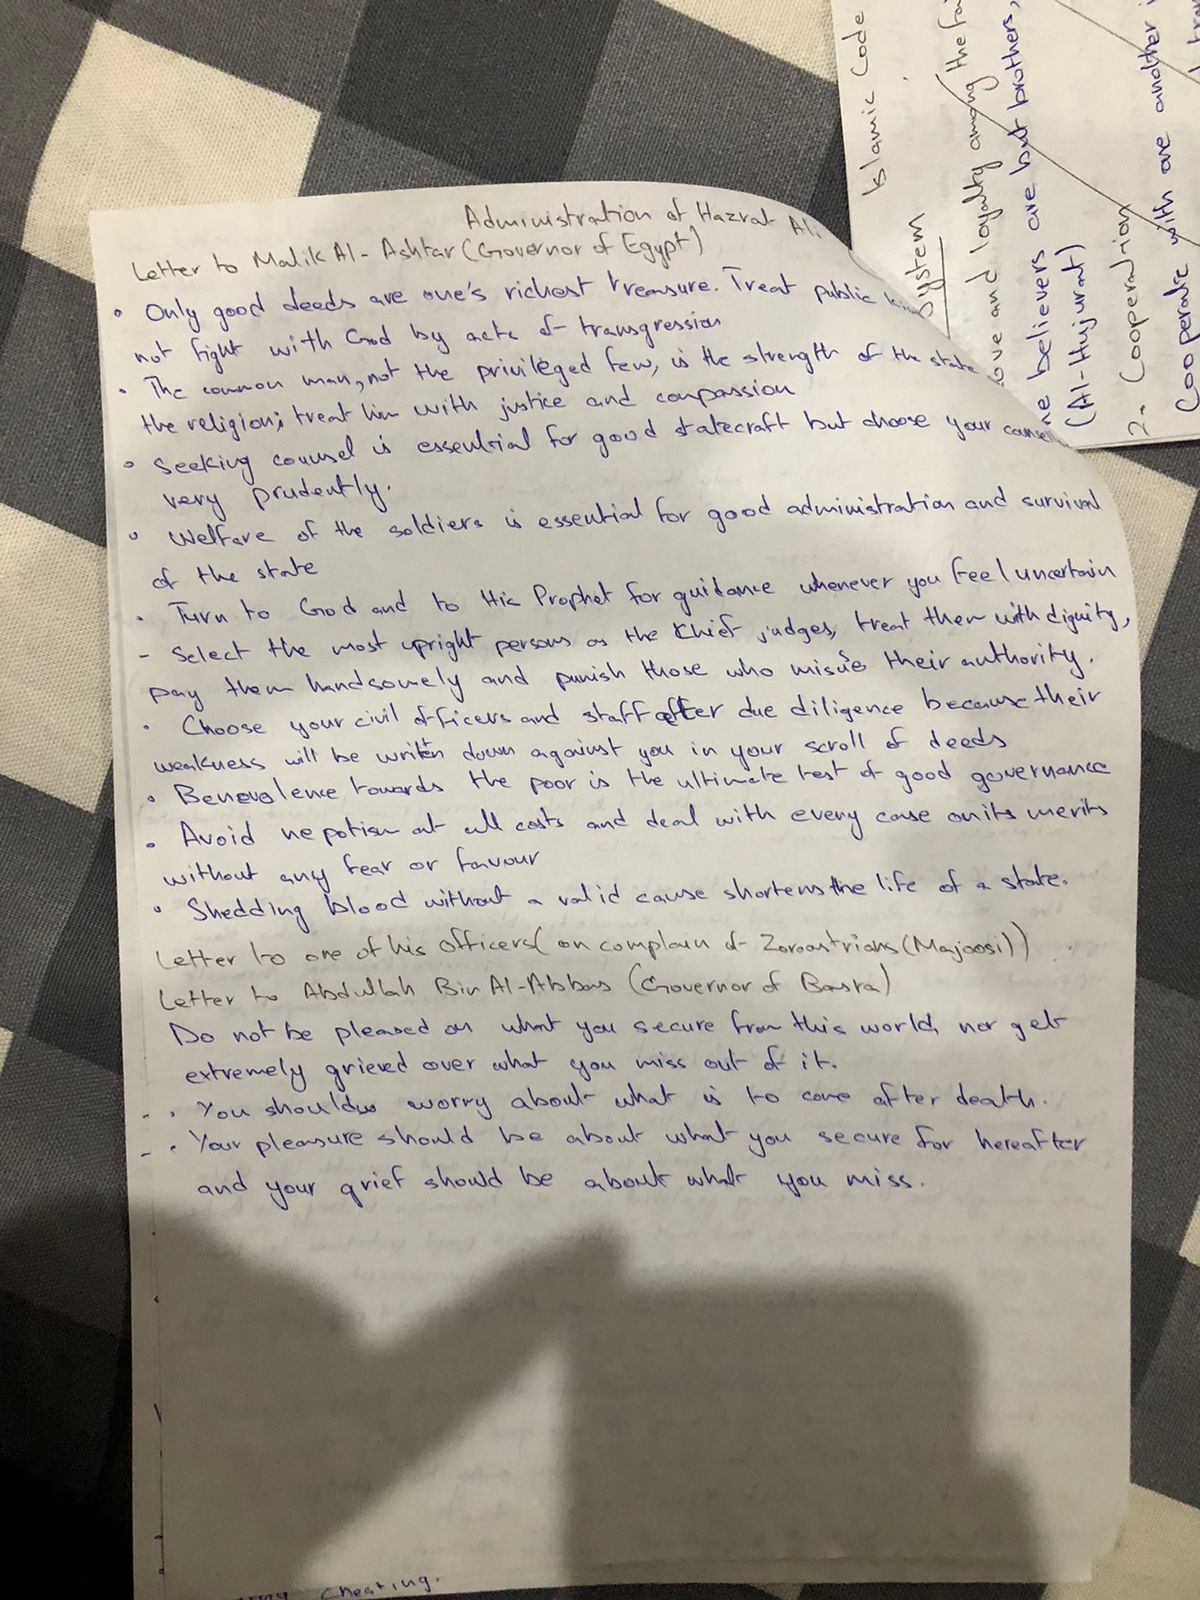 Administration of Hazrat Ali
Letter to Malik Al-Ashtar (Governor of Egypt)
• Only good deeds are one's richest treasure. Treat public
not fight with God by acts of transgression
• The common man, not the privileged few, is the strength of the state
the religion; treat him with justice and compassion
• Seeking counsel is essential for good statecraft but choose your
very prudently.
• Welfare of the soldiers is essential for good administration and survival
of the state
• Turn to God and to His Prophet for guidance whenever you feel uncertain
- Select the most upright persons as the Chief judges, treat them with dignity,
pay them handsomely and punish those who misuse their authority.
• Choose your civil officers and staff after due diligence because their
weakness will be written down against you in your scroll of deeds
• Benevolence towards the poor is the ultimate test of good governance
• Avoid nepotism at all costs and deal with every case on its merits
without any fear or favour
• Shedding blood without a valid cause shortens the life of a state.
Letter to one of his officers (on complain of Zoroastrians (Majoosi))
Letter to Abdullah Bin Al-Abbas (Governor of Basra)
Do not be pleased on what you secure from this world, nor get
extremely grieved over what you miss out of it.
- • You should worry about what is to come after death.
- • Your pleasure should be about what you secure for hereafter
and your grief should be about what you miss.
cheating.
Islamic Code
System
love and loyalty among the
believers are but brothers,
(Al-Hujurat)
2- Cooperation
Cooperate with one another